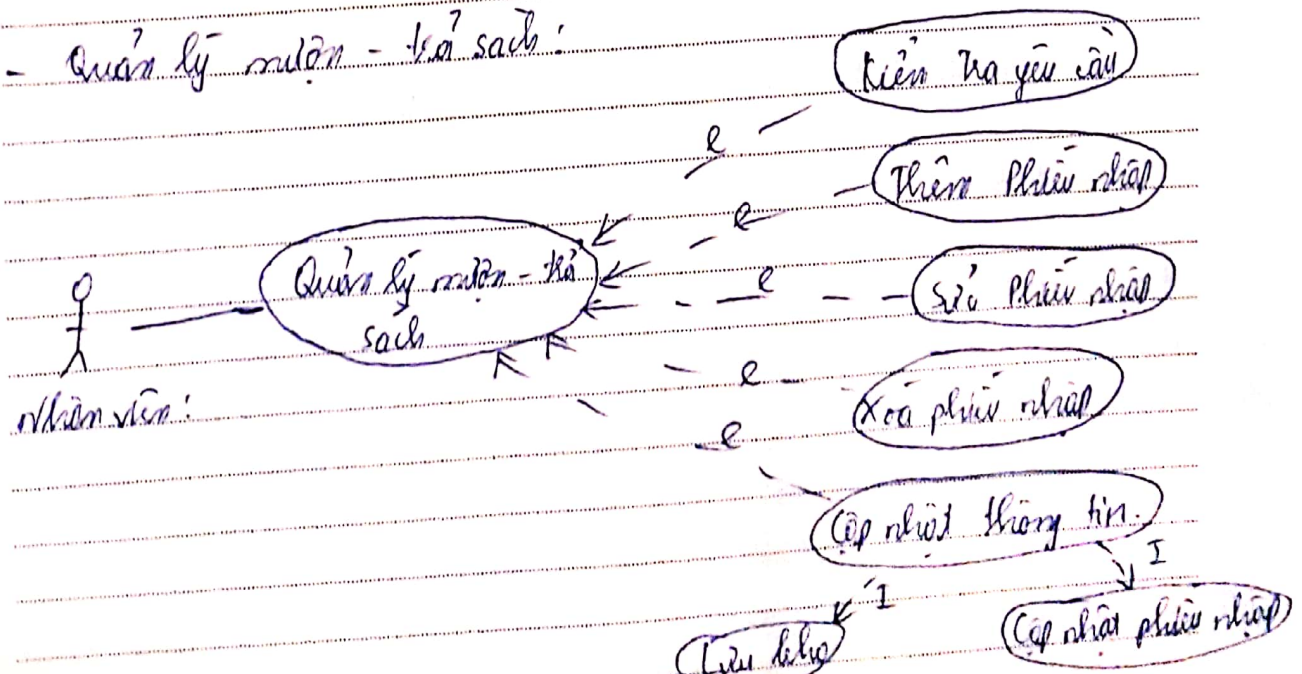 - Quản lý mượn - trả sách:
Kiểm tra yêu cầu
e
Thêm Phiếu nhập
e
Quản lý mượn - trả
sách
e
Sửa Phiếu nhập
e
Xoá phiếu nhập
Nhân viên:
e
Cập nhật thông tin.
I
I
Lưu kho
Cập nhật phiếu nhập